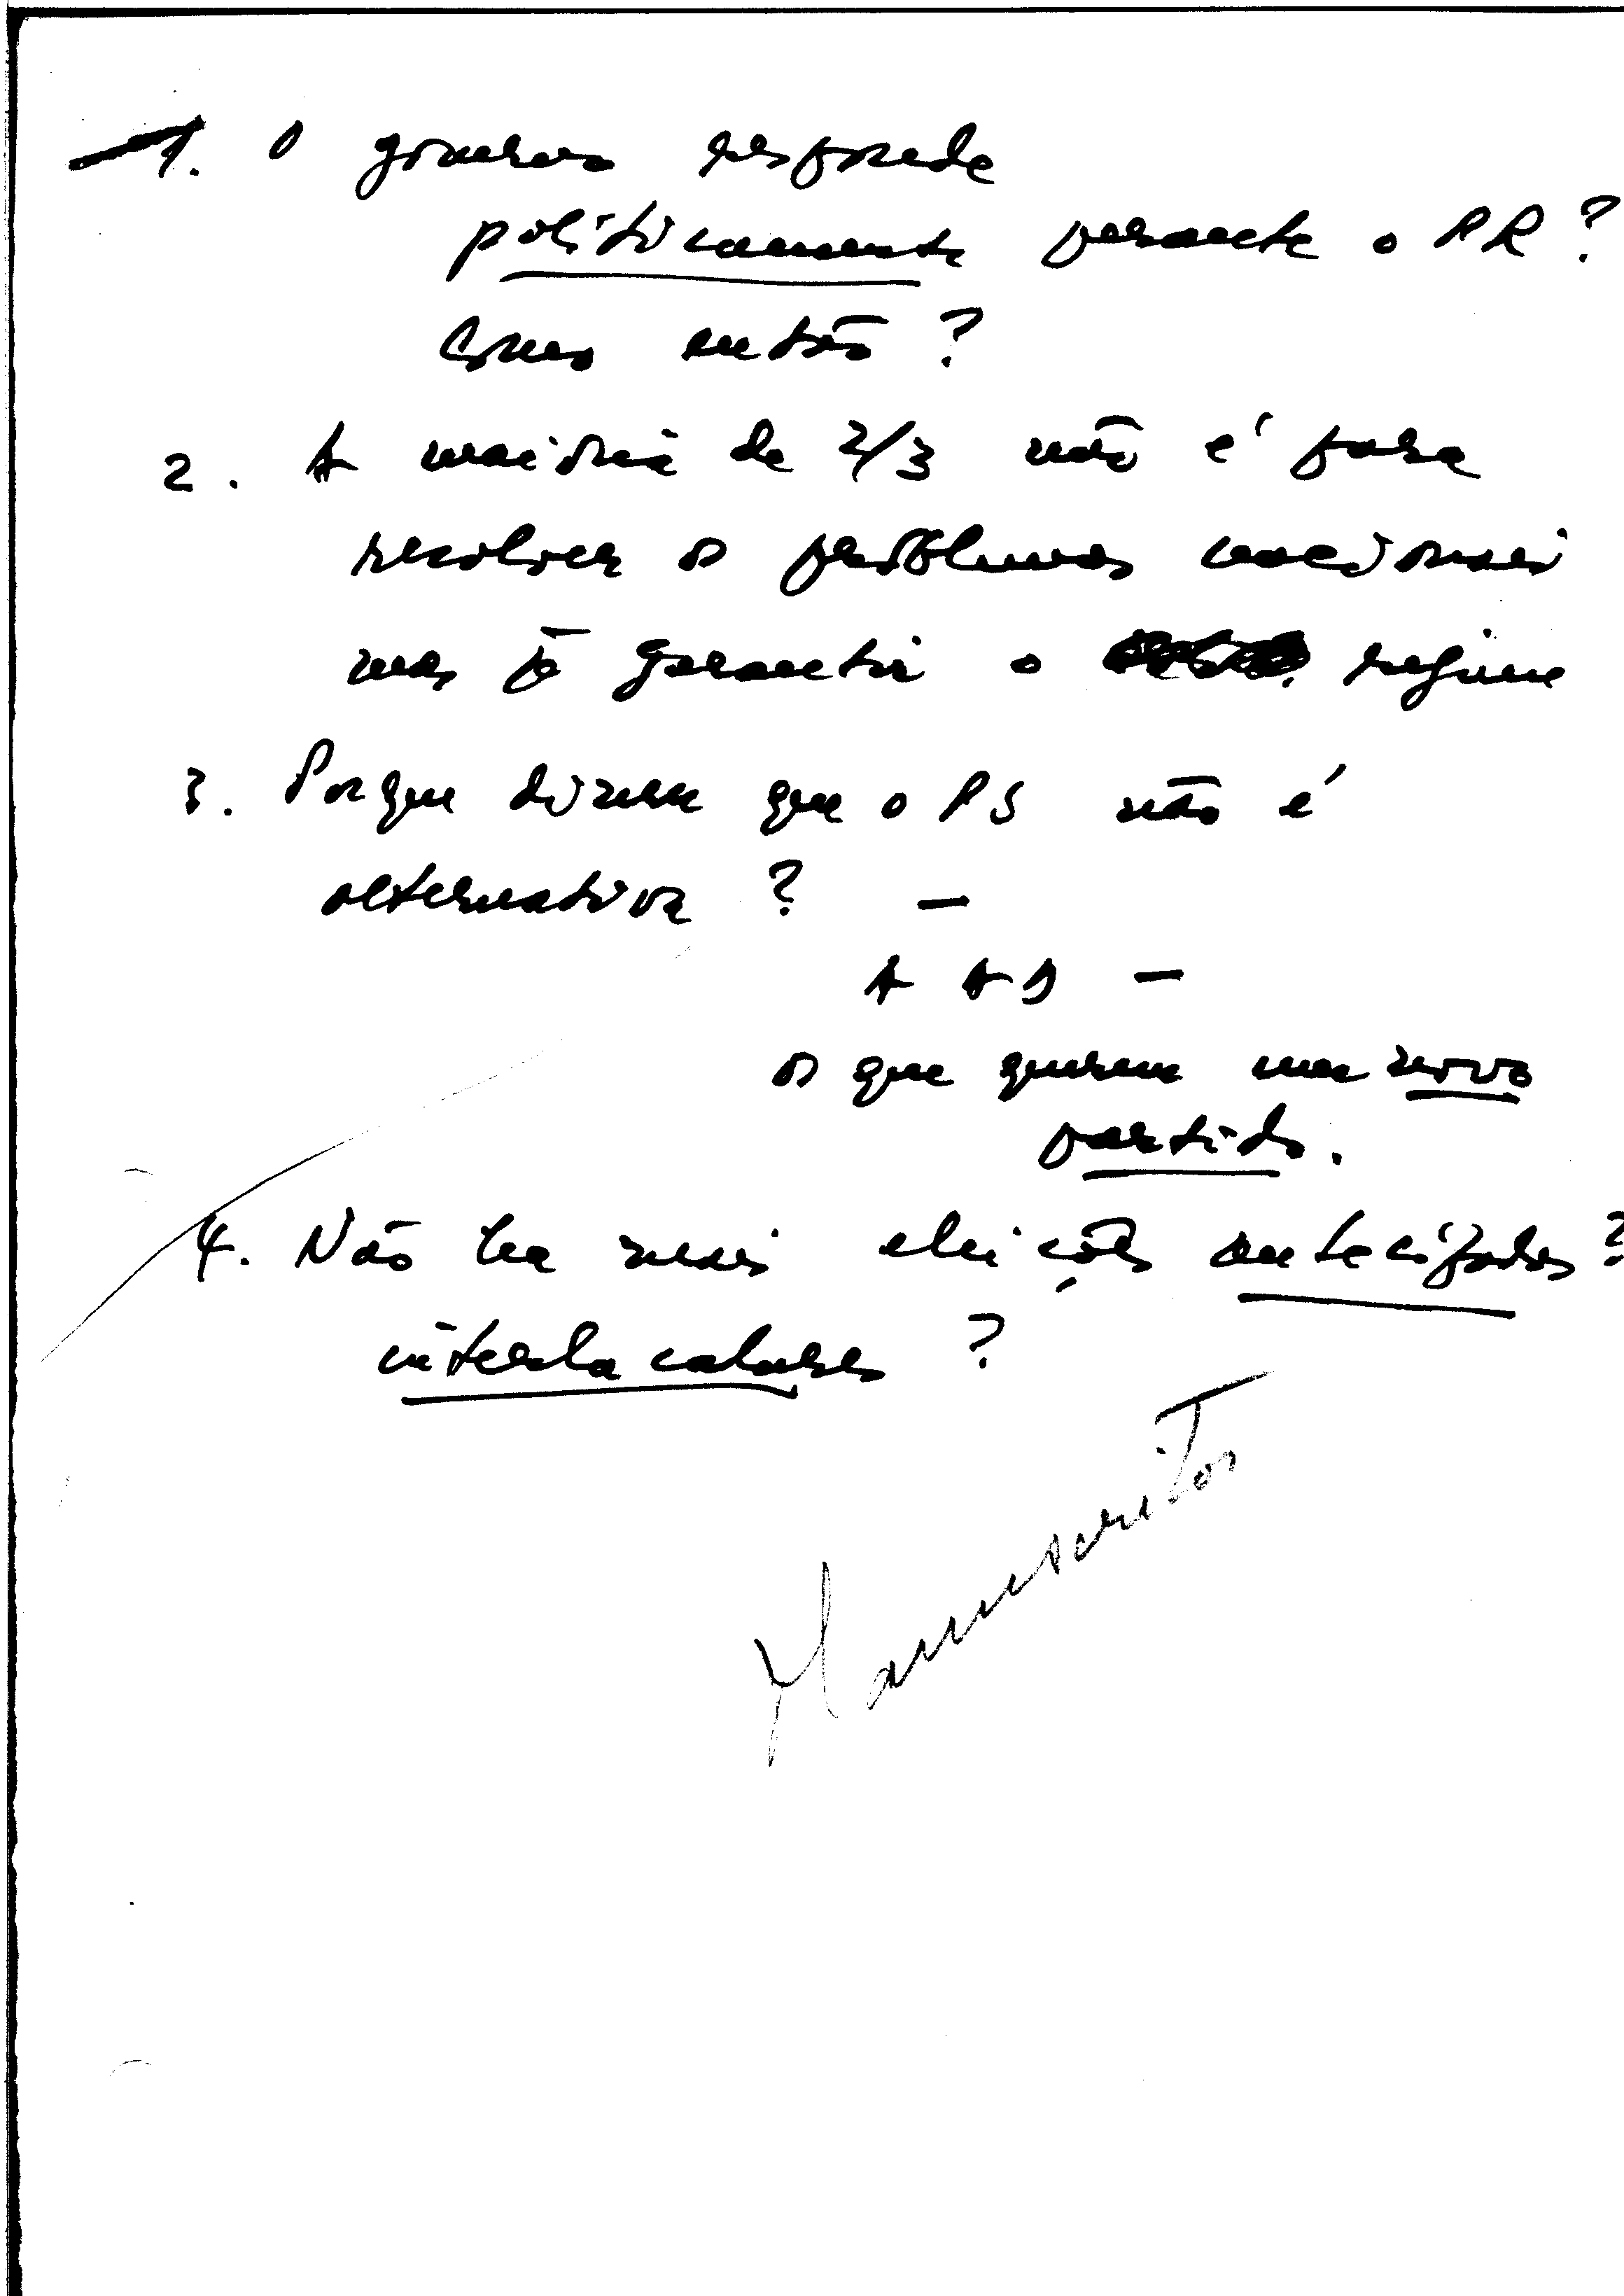 1. O governo responde
politicamente perante o PR?
Como então?
2. A maioria de 2/3 não é para
resolver os problemas nacionais
mas garantir o regime
3. Porque dizem que o PS não é
alternativa? —
A AD —
os que querem um novo
partido.
4. Não há mais eleições antecipadas?
interlacalares?
Manuscritos